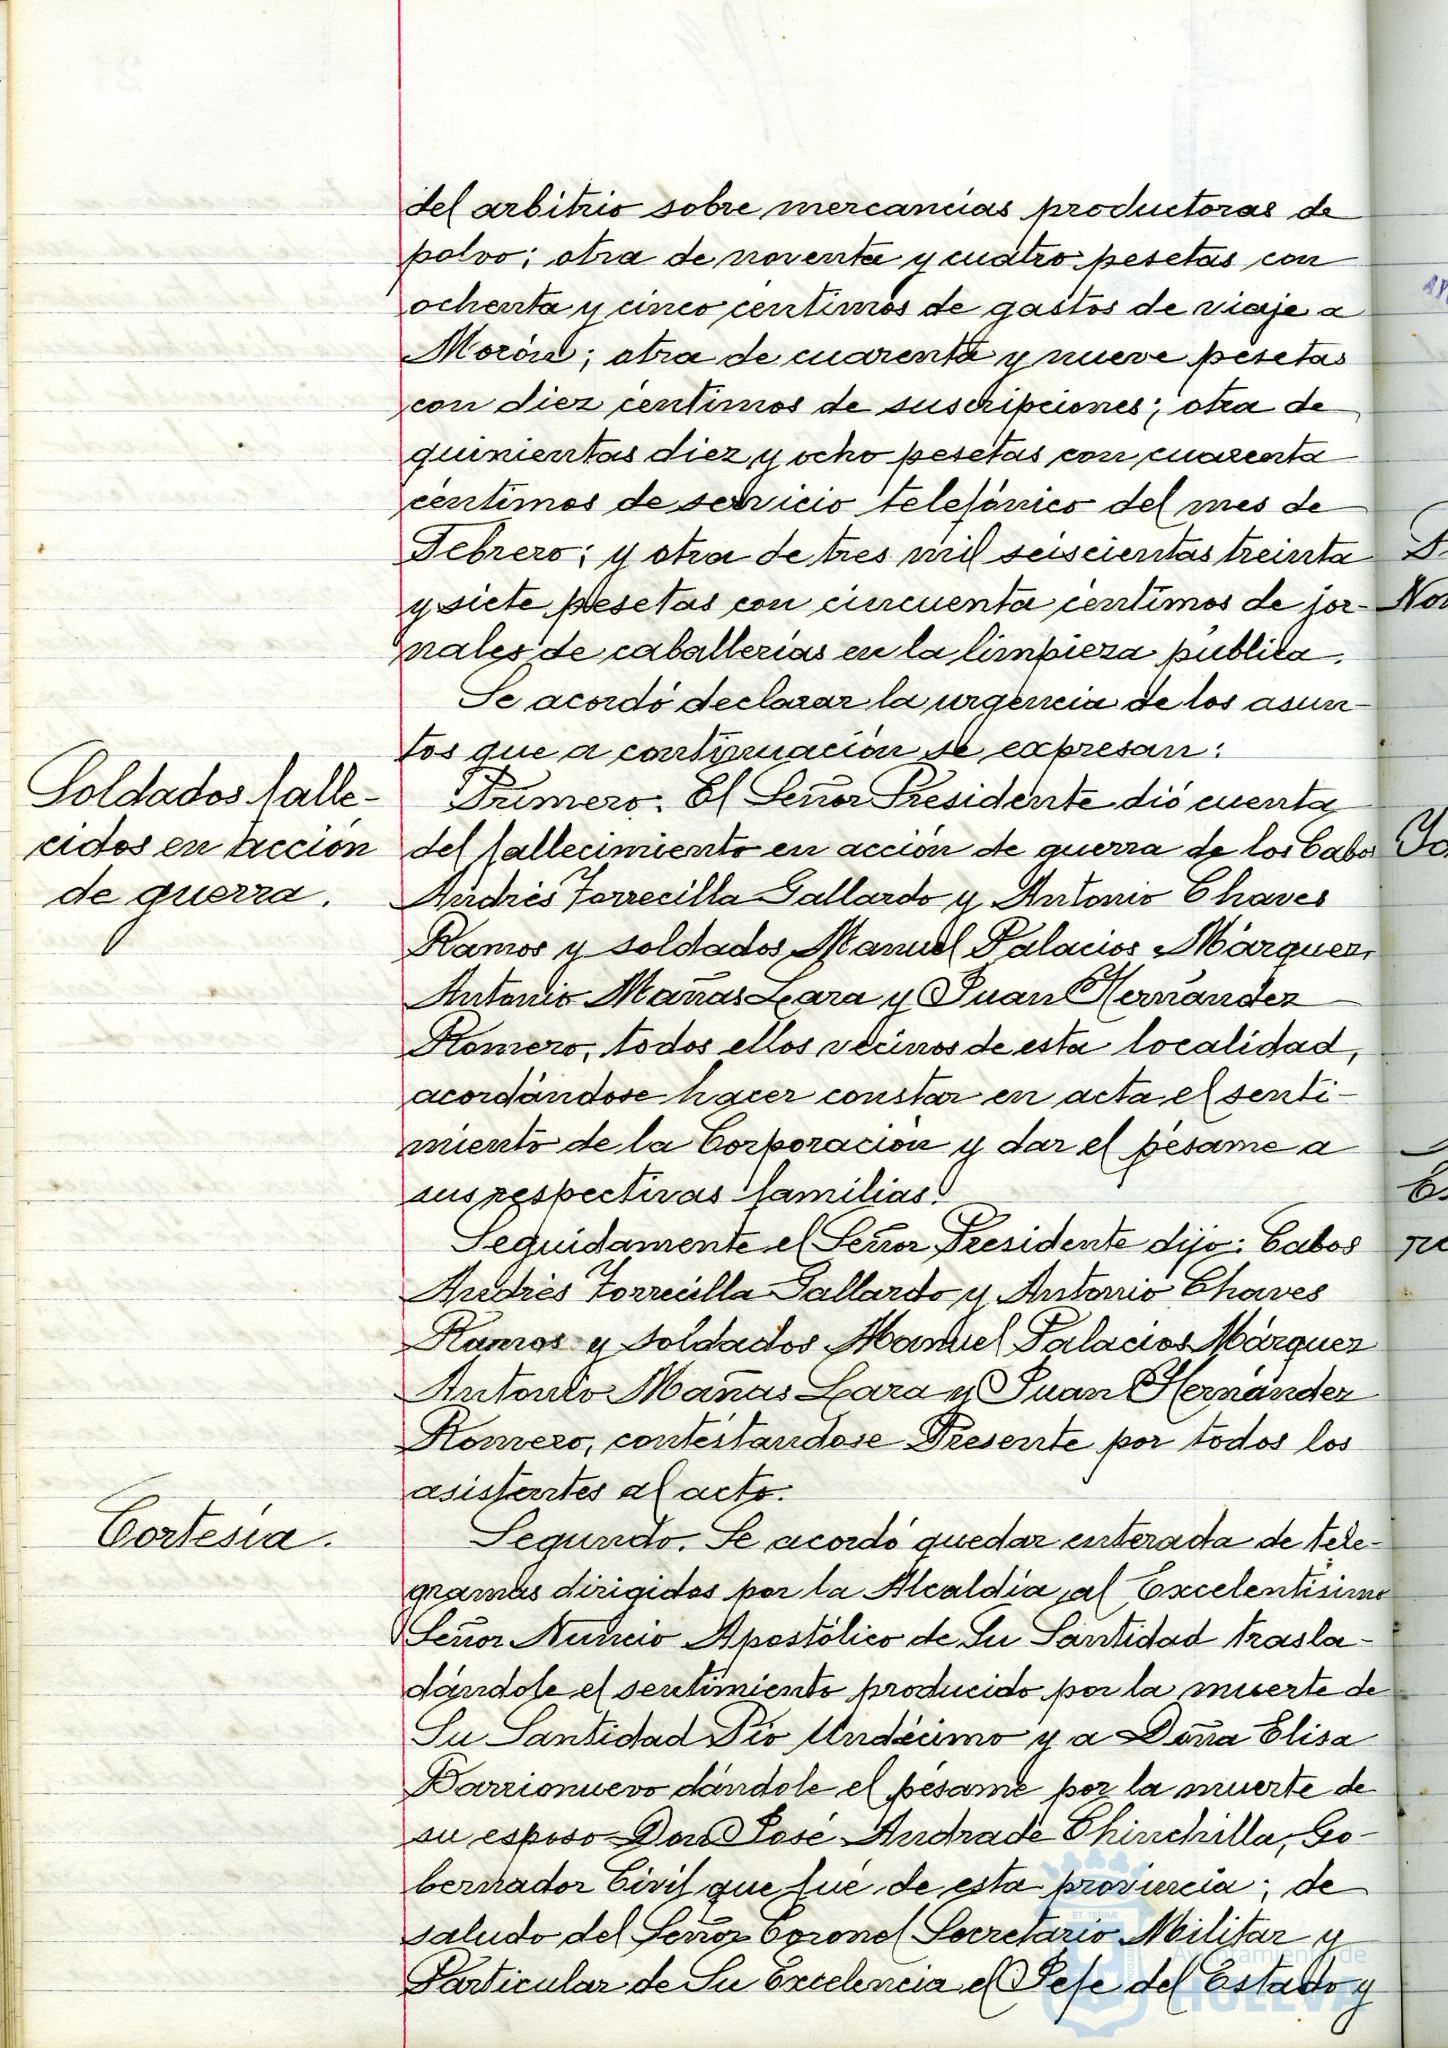 del arbitrio sobre mercancias productoras de
polvo; otra de noventa y cuatro pesetas con
ochenta y cinco céntimos de gastos de viaje a
Morón; otra de cuarenta y nueve pesetas
con diez céntimos de suscripciones; otra de
quinientas diez y ocho pesetas con cuarenta
céntimos de servicio telefónico del mes de
Febrero; y otra de tres mil seiscientas treinta
y siete pesetas con cincuenta céntimos de jor-
nales de caballerías en la limpieza pública.
Se acordó declarar la urgencia de los asun-
tos que a continuación se expresan:
Soldados falle-
cidos en acción
de guerra.
Primero. El Señor Presidente dió cuenta
del fallecimiento en acción de guerra de los Cabos
Andrés Torrecilla Gallardo y Antonio Chaves
Ramos y soldados Manuel Palacios Márquez,
Antonio Mañas Lara y Juan Hernández
Romero, todos ellos vecinos de esta localidad,
acordándose hacer constar en acta el senti-
miento de la Corporación y dar el pésame a
sus respectivas familias.
Seguidamente el Señor Presidente dijo: Cabos
Andrés Torrecilla Gallardo y Antonio Chaves
Ramos y soldados Manuel Palacios Márquez
Antonio Mañas Lara y Juan Hernández
Romero, contestandose Presente por todos los
asistentes al acto.
Cortesía.
Segundo. Se acordó quedar enterada de tele-
gramas dirigidos por la Alcaldía al Excelentísimo
Señor Nuncio Apostólico de Su Santidad trasla-
dándole el sentimiento producido por la muerte de
Su Santidad Pío Undécimo y a Doña Elisa
Barrionuevo dándole el pésame por la muerte de
su esposo Don José Andrade Chinchilla, Go-
bernador Civil que fué de esta provincia; de
saludo del Señor Coronel Secretario Militar y
Particular de Su Excelencia el Jefe del Estado y
ET TERRÆ
Ayuntamiento de
HUELVA